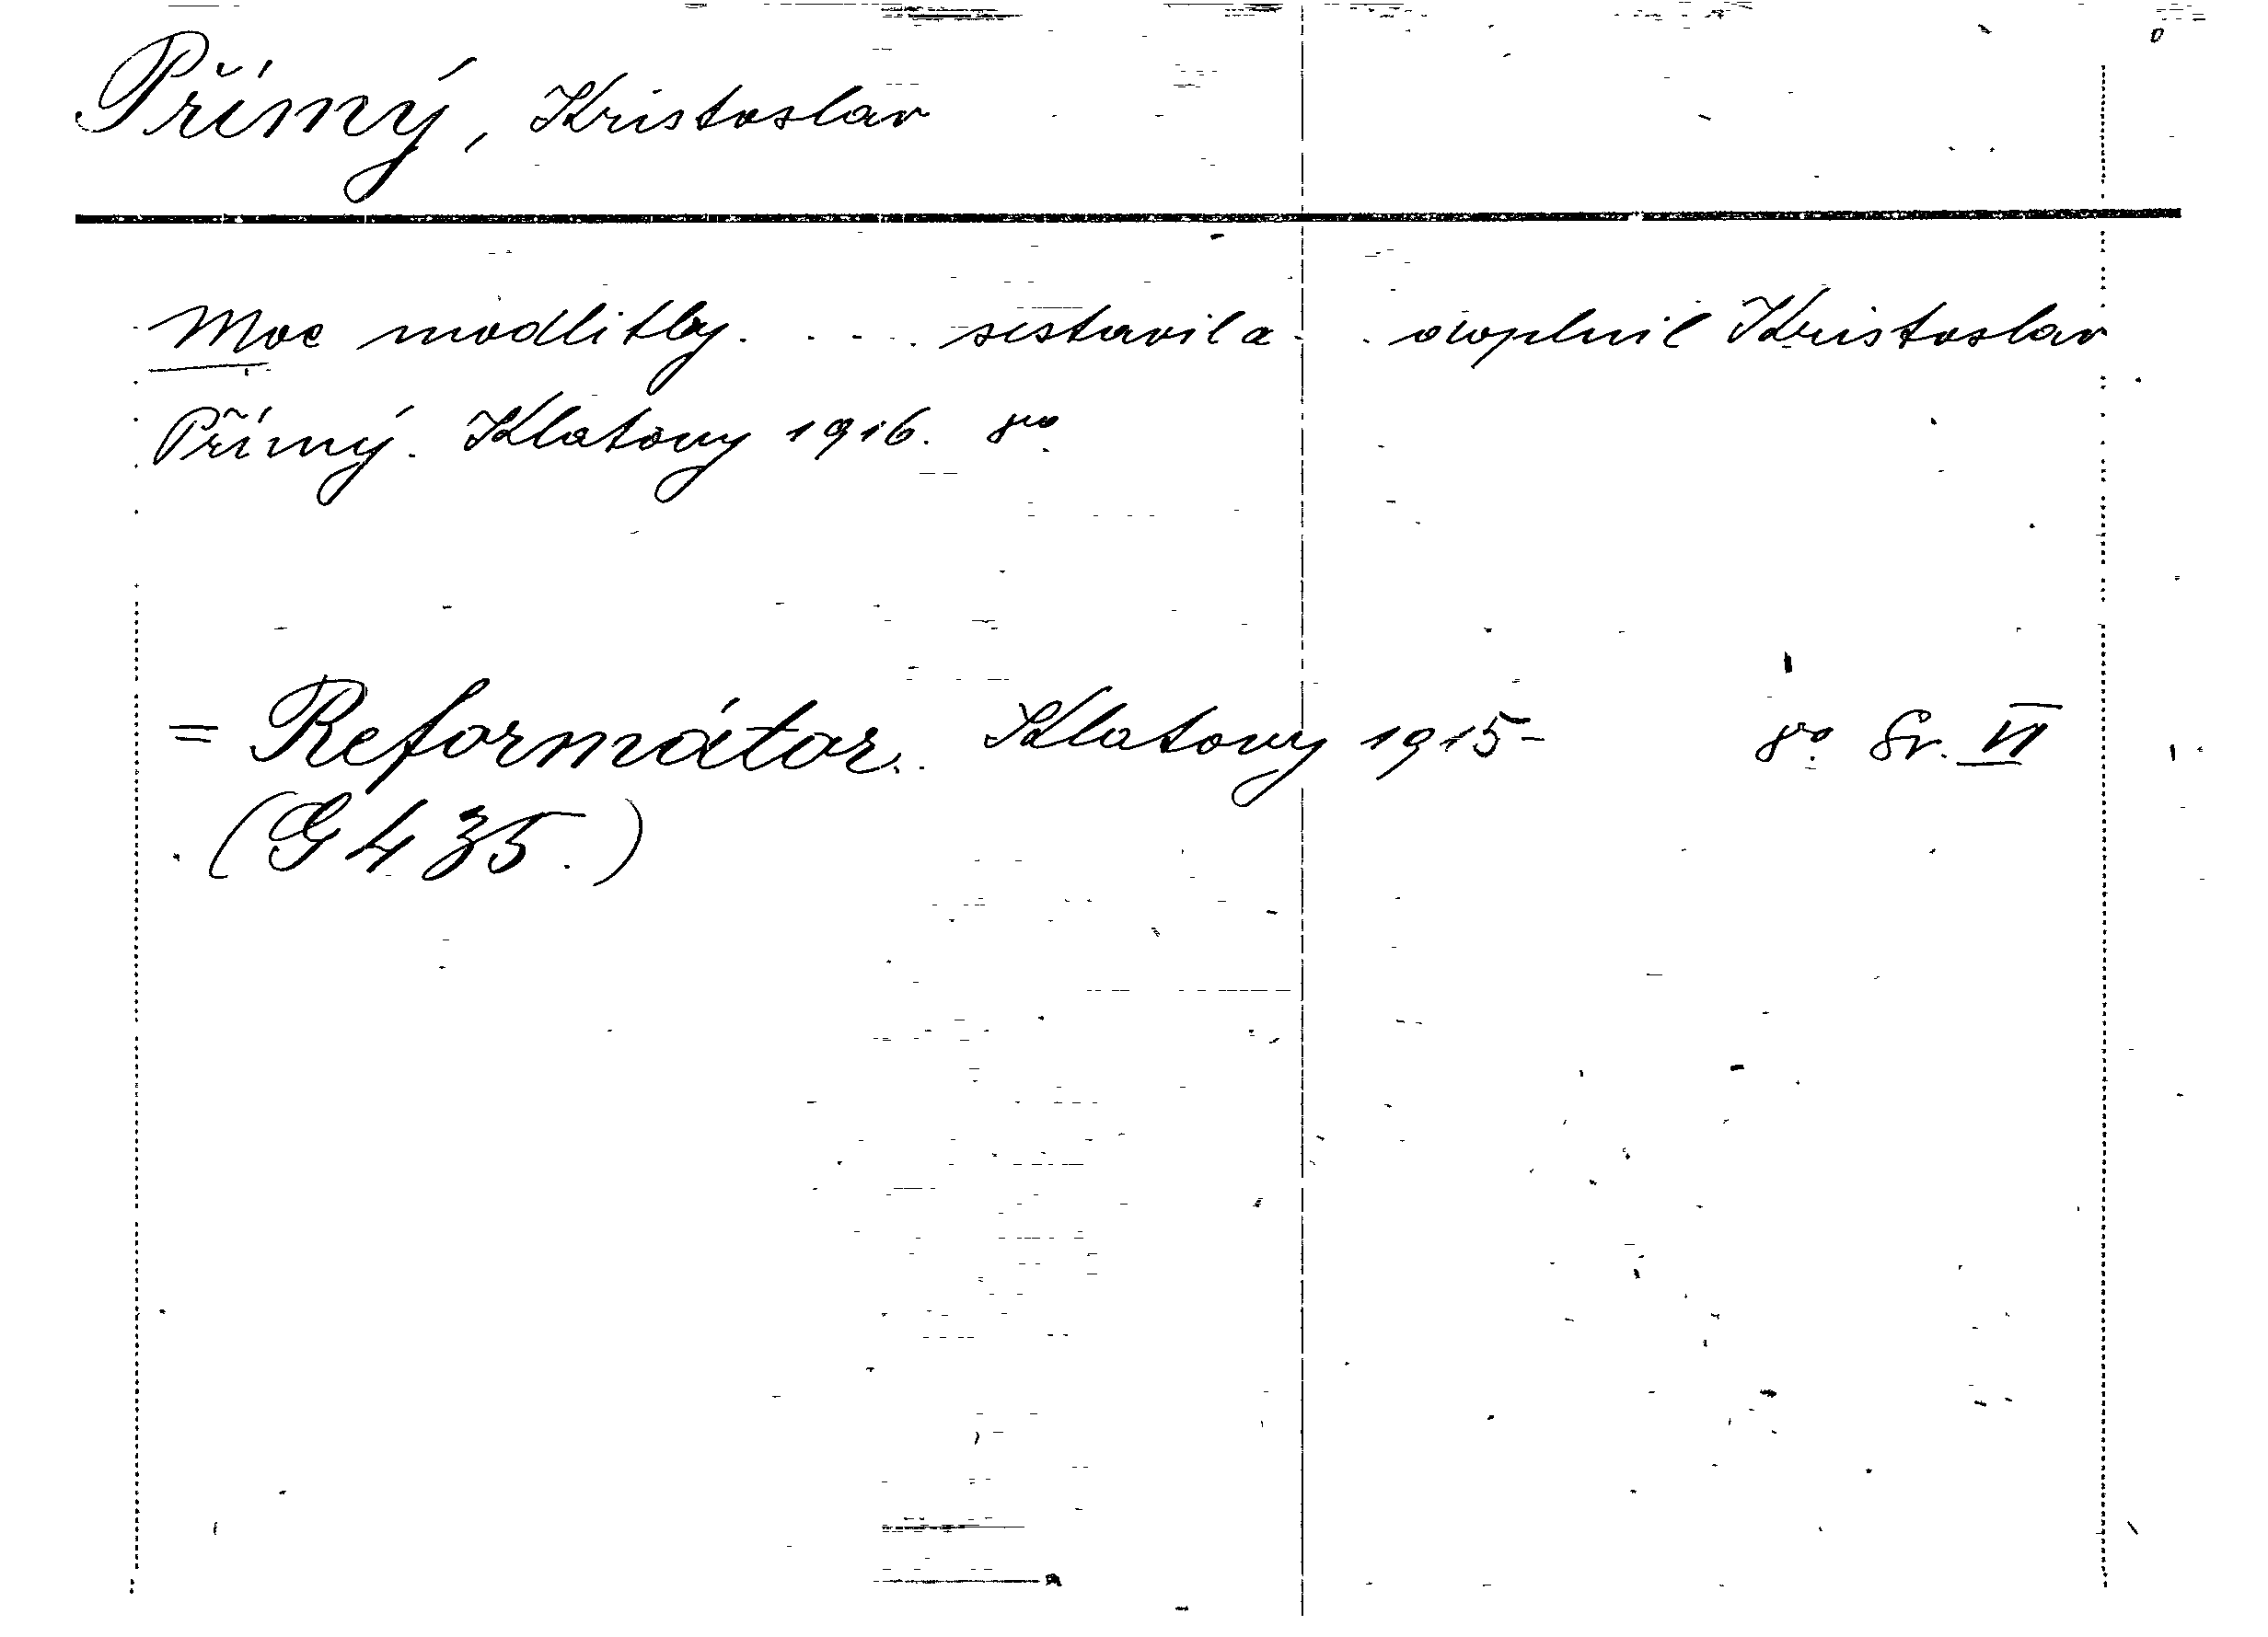 Přímý, Kristoslav
Moc modlitby. . . . . sestavil a . . doplnil Kristoslav
Přímý. Klatovy 1916. 8vo.
= Reformátor. Klatovy 1915- 8vo. Sv. VI
(G 435.)